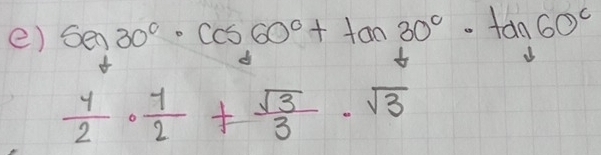 e) Sen 30° · cos 60° + tan 30° · tan 60°
↓ ↓ ↓ ↓
1/2 · 1/2 + √3/3 · √3